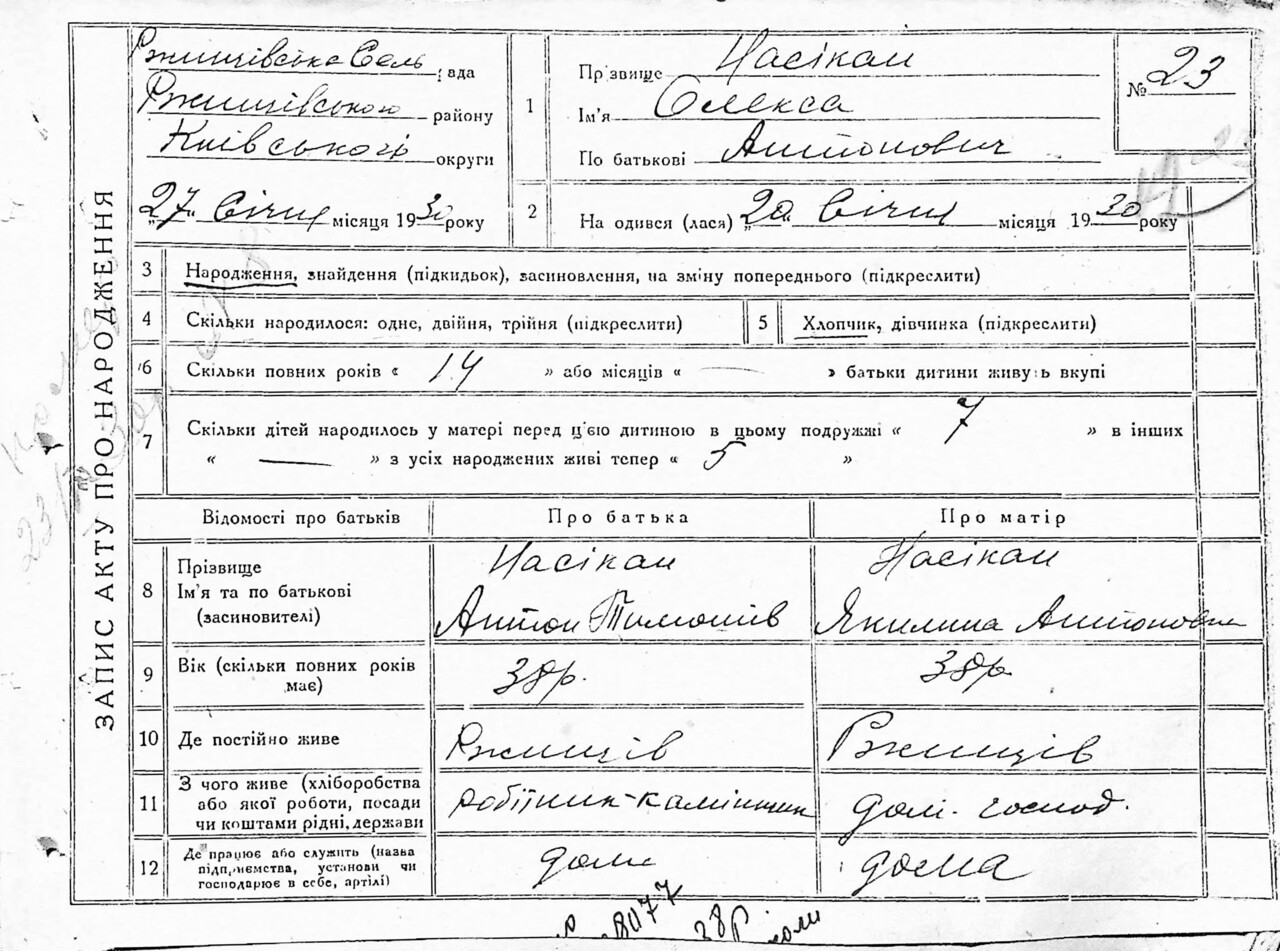 ЗАПИС АКТУ ПРО НАРОДЖЕННЯ
Ржищівська Сель рада
Ржищівського району
Київського округи
„27“ Січня місяця 1930 року
1
Прізвище Насікан
Ім'я Олекса
По батькові Антонович
№ 23
2
Народився (лася) „20“ Січня місяця 1930 року
3 Народження, знайдення (підкидьок), засиновлення, на зміну попереднього (підкреслити)
4 Скільки народилося: одне, двійня, трійня (підкреслити)
5 Хлопчик, дівчинка (підкреслити)
6 Скільки повних років « 14 » або місяців « — » батьки дитини живуть вкупі
7 Скільки дітей народилось у матері перед ц'єю дитиною в цьому подружжі « 7 » в інших
« — » з усіх народжених живі тепер « 5 »
Відомості про батьків Про батька Про матір
8 Прізвище Насікан Насікан
Ім'я та по батькові
(засиновителі) Антон Тимошів Якилина Антоновна
9 Вік (скільки повних років має) 38р. 38р.
10 Де постійно живе Ржищів Ржищів
11 З чого живе (хліборобства
або якої роботи, посади робітник-камінщик дом. господ.
чи коштами рідні, держави
12 Де працює або служить (назва
підприємства, установи чи дома дома
господарює в себе, артілі)
8077
38р